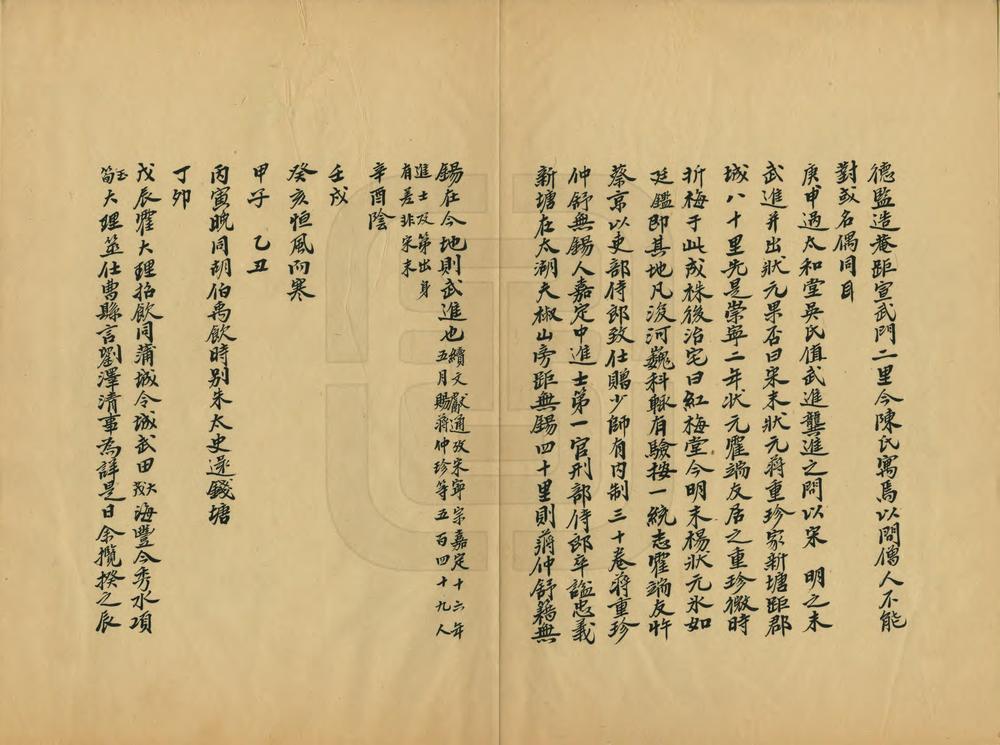 德監造菴距宣武門二里今陳氏寓焉以問僧人不能
對或名偶同耳
庚申過太和堂吳氏值武進龔進之問以宋 明之末
武進并出狀元果否曰宋末狀元蔣重珍家新塘距郡
城八十里先是崇寧二年狀元霍端友居之重珍微時
折梅于此成株後治宅曰紅梅堂今明末楊狀元氷如
廷鑑即其地凡浚河巍科輒有驗按一統志霍端友忤
蔡京以吏部侍郎致仕贈少師有內制三十卷蔣重珍
仲舒無錫人嘉定中進士第一官刑部侍郎卒謚忠義
新塘在太湖夫椒山旁距無錫四十里則蔣仲舒籍無
錫在今地則武進也續文獻通攷宋寧宗嘉定十六年
五月賜蔣仲珍等五百四十九人
進士及第出身
有差非宋末
辛酉陰
壬戌
癸亥恒風而寒
甲子 乙丑
丙寅晚同胡伯禹飲時别朱太史還錢塘
丁卯
戊辰霍大理招飲同蒲城令城武田茂大海豐令秀水項
玉筍大理筮仕曹縣言劉澤清事為詳是日余攬揆之辰